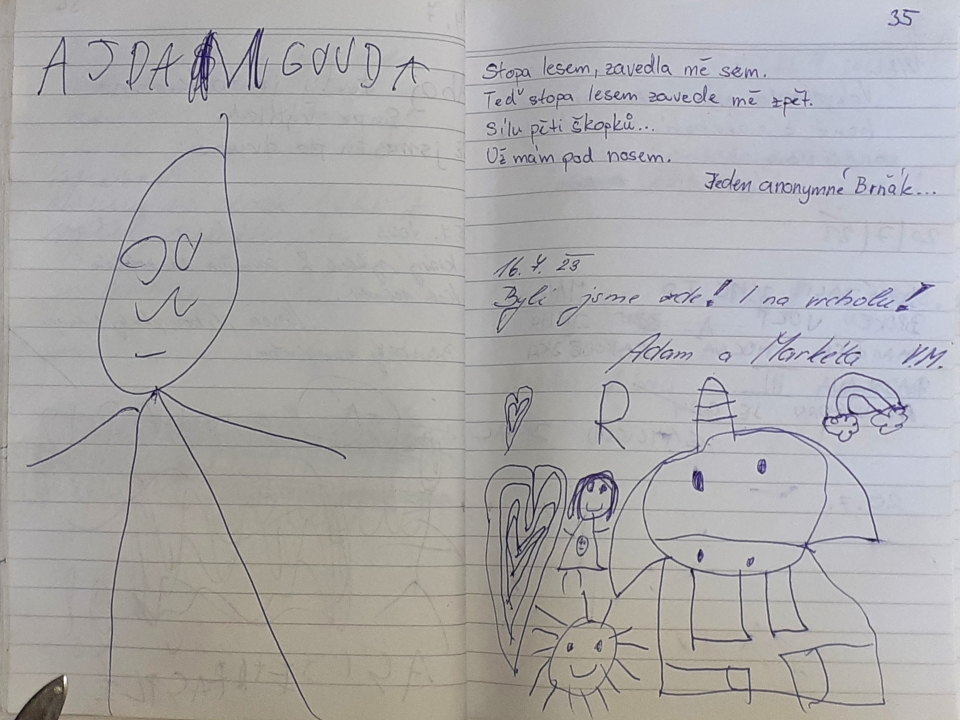 AJDA GOUDA
35
Stopa lesem, zavedla mě sem.
Teď stopa lesem zavede mě zpět.
Sílu pěti škopků...
Už mám pod nosem.
Jeden anonymné Brňák...
16.7.23
Byli jsme zde! I na vrcholu!
Adam a Markéta V.M.
R A